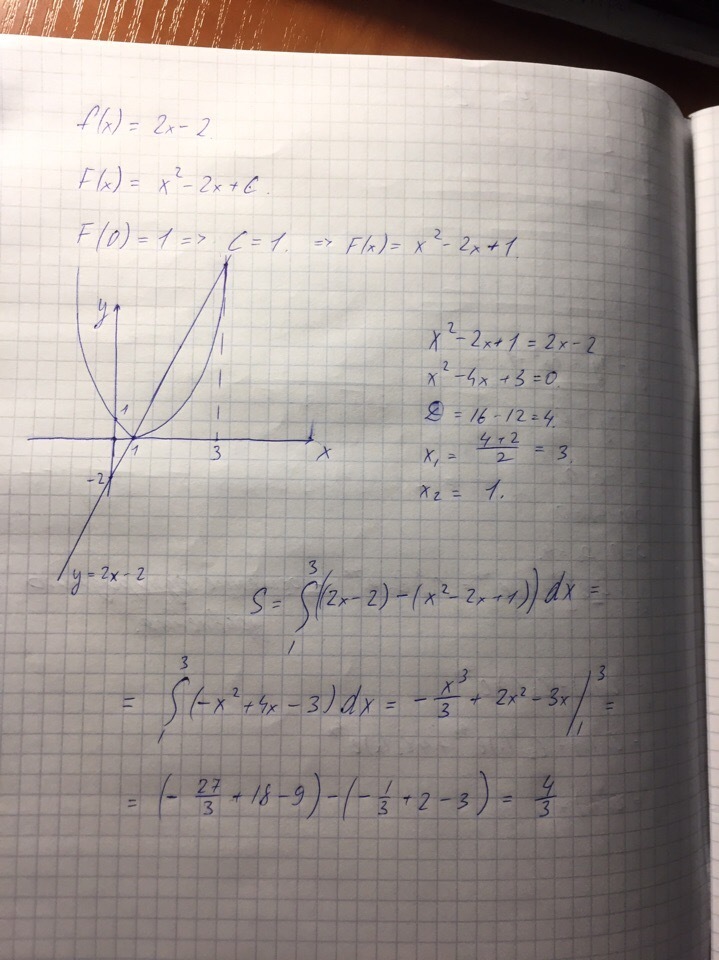 f(x) = 2x-2.
F(x) = x²-2x+C.
F(0)=1 => C=1. => F(x)= x²-2x+1.
y
1
1
3
x
-2
y=2x-2
x²-2x+1=2x-2
x²-4x+3=0.
D =16-12=4.
x₁ = \frac{4+2}{2} = 3.
x₂ = 1.
S = ∫₁³((2x-2)-(x²-2x+1)) dx =
= ∫₁³(-x²+4x-3) dx = -\frac{x³}{3} + 2x²-3x/₁³ =
= (-\frac{27}{3}+18-9)-(-\frac{1}{3}+2-3) = \frac{4}{3}